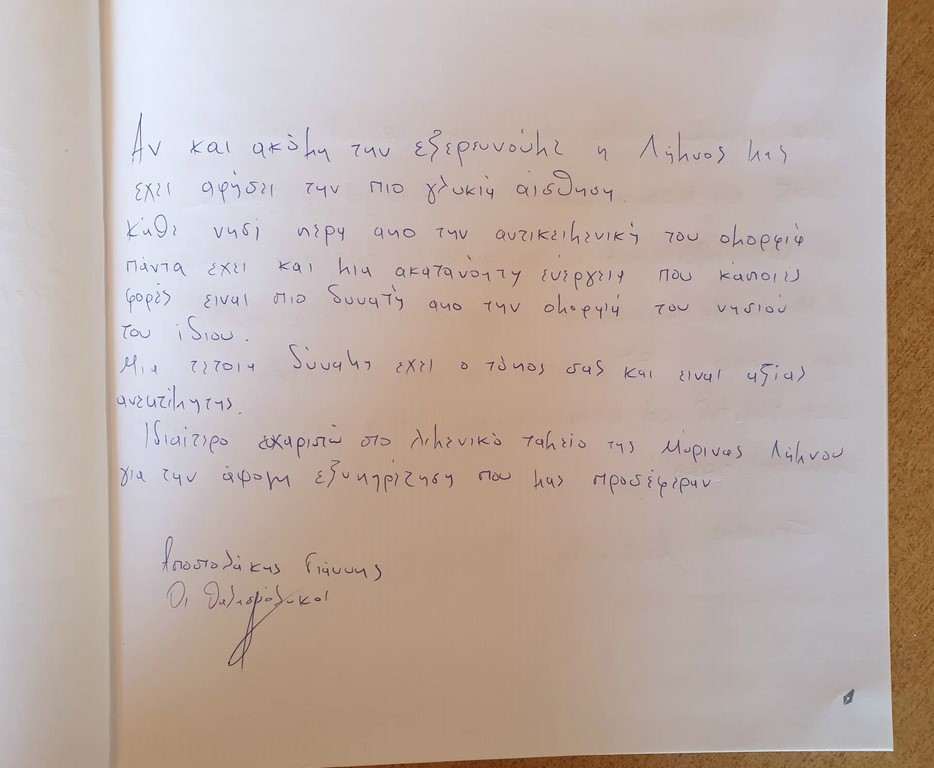 Αν και ακόμη την εξερευνούμε η Λήμνος μας
εχει αφήσει την πιο γλυκιά αίσθηση.
Κάθε νησί περα απο την αντικειμενική του ομορφιά
πάντα εχει και μια ακατανόητη ενέργεια που κάποιες
φορές ειναι πιο δυνατή απο την ομορφιά του νησιού
του ίδιου.
Μια τετοια δύναμη εχει ο τόπος σας και ειναι αξίας
ανεκτίμητης.
Ιδιαίτερο ευχαριστώ στο λιμενικό ταμείο της Μύρινας Λήμνου
για την άψογη εξυπηρέτηση που μας προσέφεραν
Αποστολάκης Γιάννης
Οι Θαλασσόλυκοι